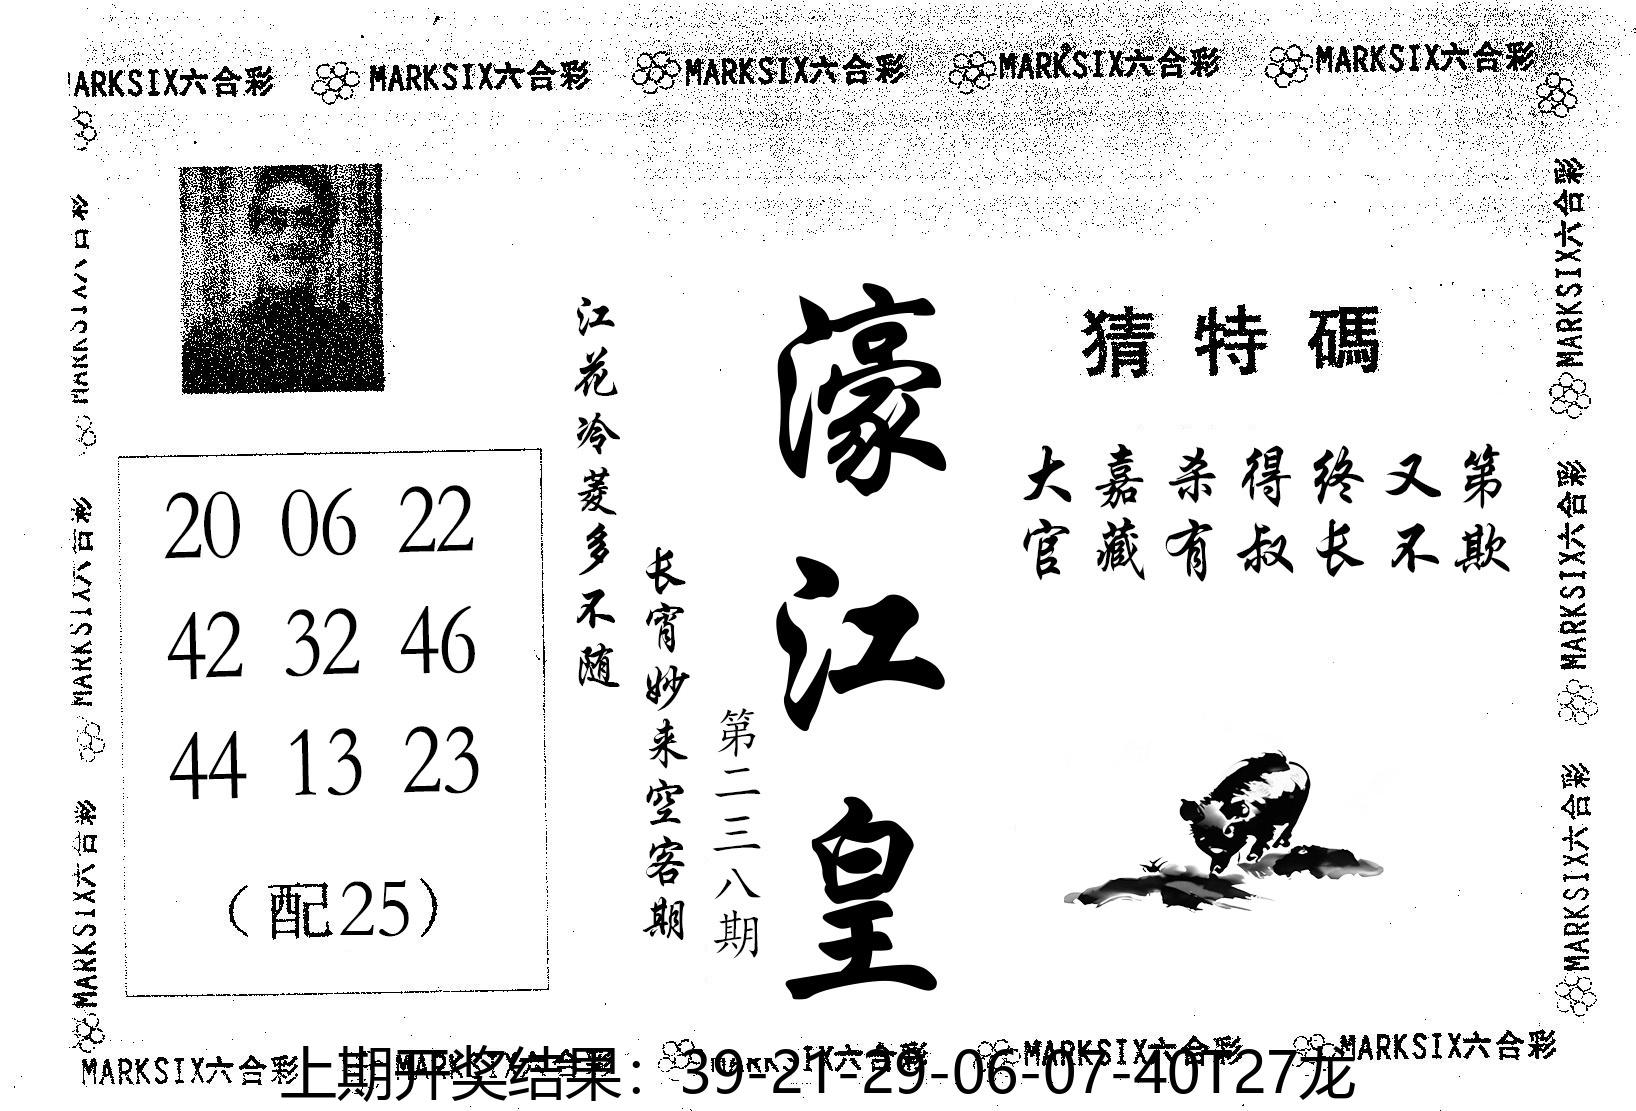 MARKSIX六合彩 MARKSIX六合彩 MARKSIX六合彩 MARKSIX六合彩 MARKSIX六合彩
MARKSIX六合彩
MARKSIX六合彩
MARKSIX六合彩
20 06 22
42 32 46
44 13 23
（配25）
江花冷菱多不随
长宵妙来空客期
第二三八期
濠江皇
猜特碼
大嘉杀得终又第
官藏有叔长不欺
MARKSIX六合彩
MARKSIX六合彩
MARKSIX六合彩
MARKSIX六合彩 MARKSIX六合彩 MARKSIX六合彩 MARKSIX六合彩 MARKSIX六合彩
上期开奖结果：39-21-29-06-07-40T27龙